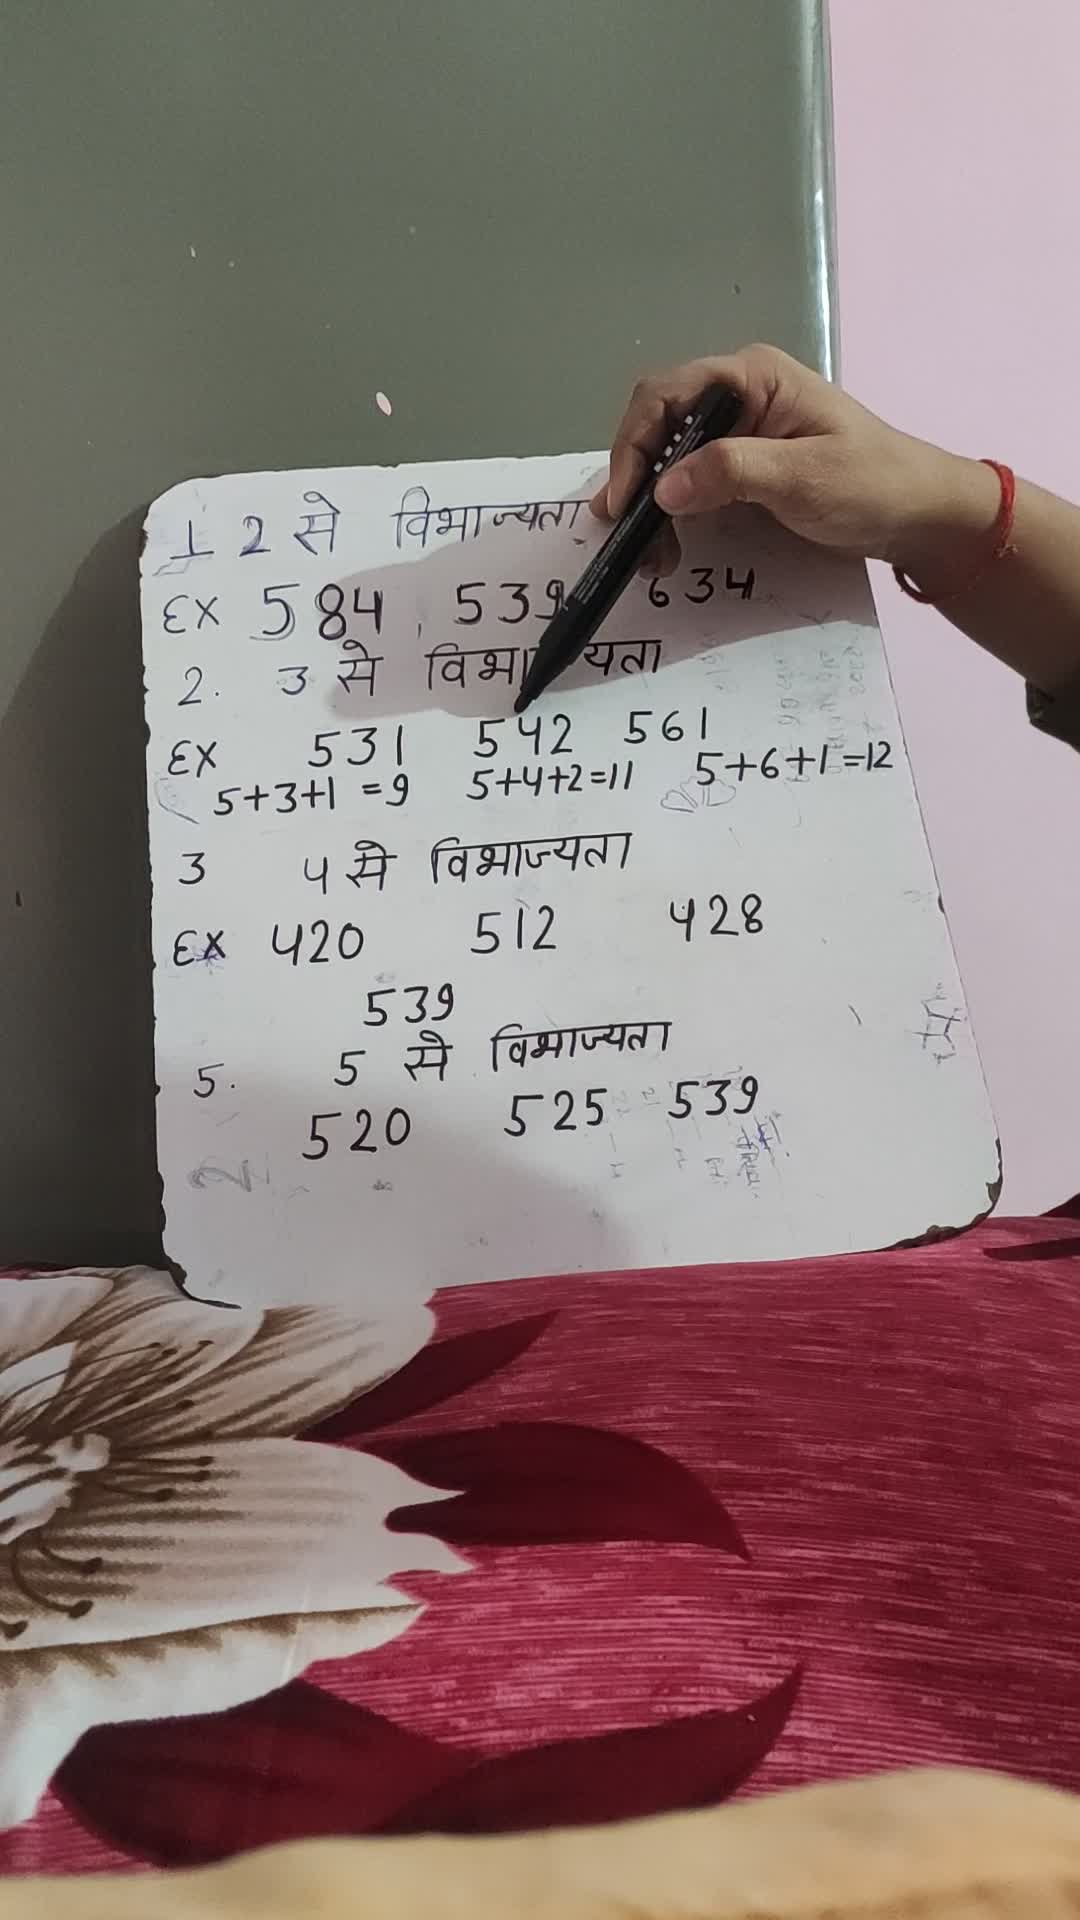 1 2 से विभाज्यता
EX 584, 539 634
2. 3 से विभाज्यता
EX 531 542 561
5+3+1 =9 5+4+2=11 5+6+1=12
3 4 से विभाज्यता
EX 420 512 428
539
5. 5 से विभाज्यता
520 525 539